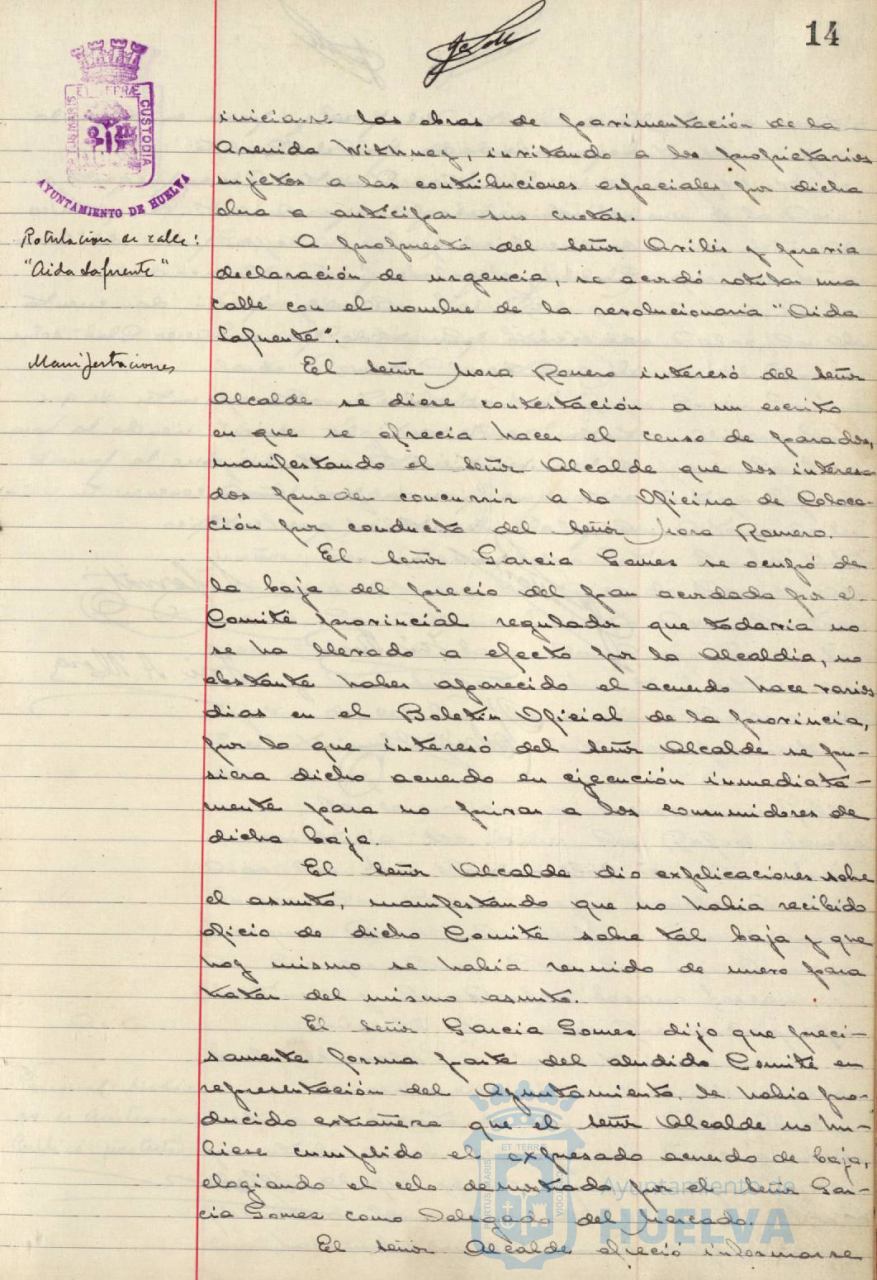 14
PORTUS MARIS ET TERRÆ CUSTODIA
AYUNTAMIENTO DE HUELVA
iniciarse las obras de pavimentación de la
Avenida Withney, invitando a los propietarios
sujetos a las contribuciones especiales por dicha
obra a anticipar sus cuotas.
Rotulacion de calle:
"Aida Lafuente"
A propuesta del señor Avilés y previa
declaración de urgencia, se acordó rotular una
calle con el nombre de la revolucionaria "Aida
Lafuente".
Manifestaciones
El señor Mora Romero interesó del señor
Alcalde se diese contestación a un escrito
en que se ofrecia hacer el censo de parados,
manifestando el señor Alcalde que los interesa
dos pueden concurrir a la Oficina de Coloca-
ción por conducto del señor Mora Romero.
El señor Garcia Gomez se ocupó de
la baja del precio del pan acordada por el
Comité provincial regulador que todavia no
se ha llevado a efecto por la Alcaldia, no
obstante haber aparecido el acuerdo hace varios
dias en el Boletin Oficial de la provincia,
por lo que interesó del señor Alcalde se pu-
siera dicho acuerdo en ejecución inmediata-
mente para no privar a los consumidores de
dicha baja.
El señor Alcalde dio explicaciones sobre
el asunto, manifestando que no habia recibido
oficio de dicho Comité sobre tal baja y que
hoy mismo se habia reunido de nuevo para
tratar del mismo asunto.
El señor Garcia Gomez dijo que preci-
samente forma parte del aludido Comité en
representación del Ayuntamiento, le habia pro-
ducido extrañeza que el señor Alcalde no hu-
biese cumplido el expresado acuerdo de baja,
elogiando el celo demostrado por el señor Gar-
cia Gomez como Delegado del Mercado.
El señor Alcalde ofreció informarse
Ayuntamiento de
HUELVA